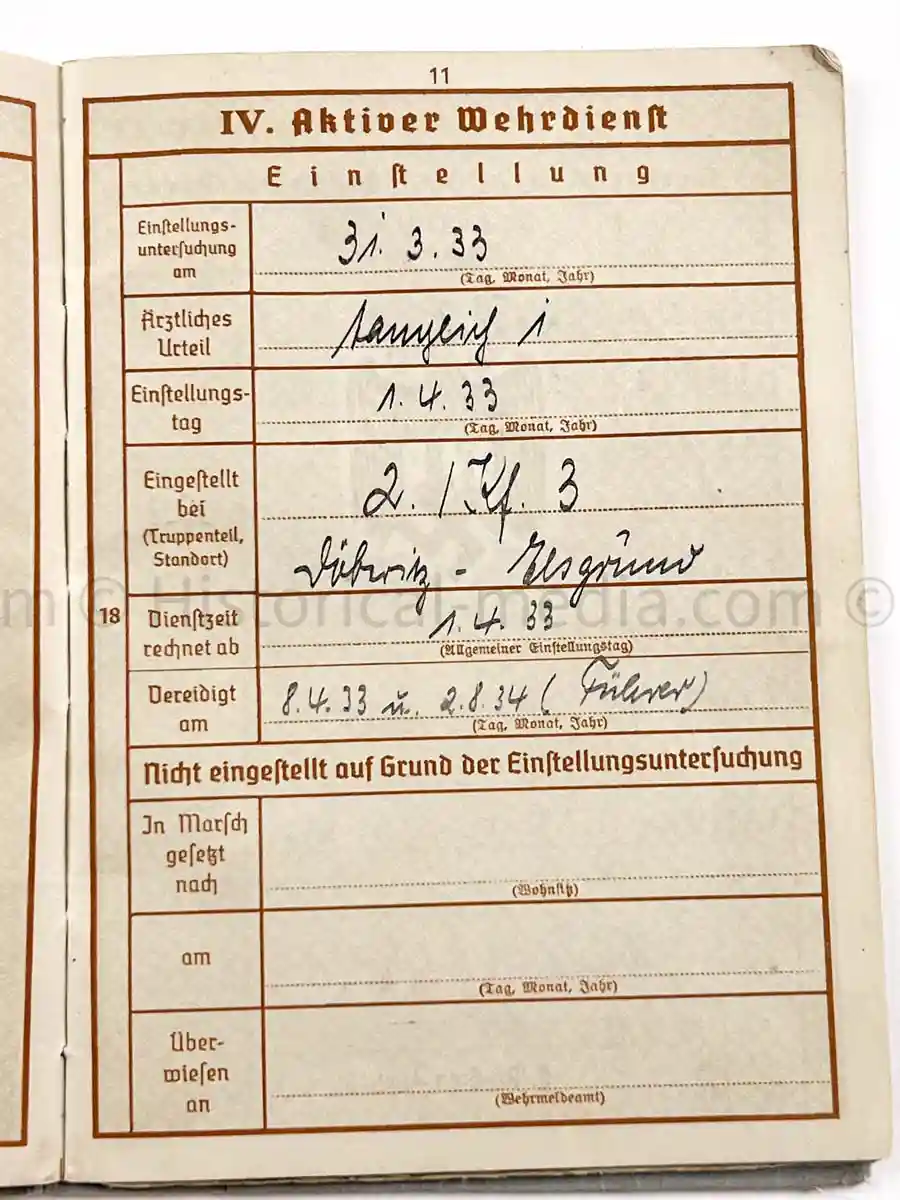 11
IV. Aktiver Wehrdienst
Einstellung
Einstellungs-
untersuchung
am
31. 3. 33
(Tag, Monat, Jahr)
Ärztliches
Urteil
tauglich 1
Einstellungs-
tag
1. 4. 33
(Tag, Monat, Jahr)
Eingestellt
bei
(Truppenteil,
Standort)
2. / Kf. 3
Döberitz - Elsgrund
18
Dienstzeit
rechnet ab
1. 4. 33
(Allgemeiner Einstellungstag)
Vereidigt
am
8.4.33 u. 2.8.34 (Führer)
(Tag, Monat, Jahr)
Nicht eingestellt auf Grund der Einstellungsuntersuchung
In Marsch
gesetzt
nach
(Wohnsitz)
am
(Tag, Monat, Jahr)
Über-
wiesen
an
(Wehrmeldeamt)
m © Historical-media.com ©